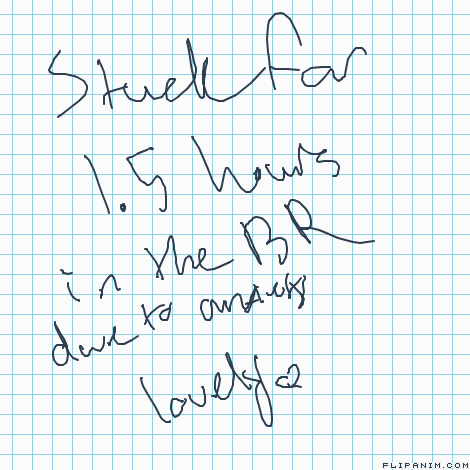 Stuck for
1.5 hours
in the BR
due to anxiety
lovely
FLIPANIM.COM